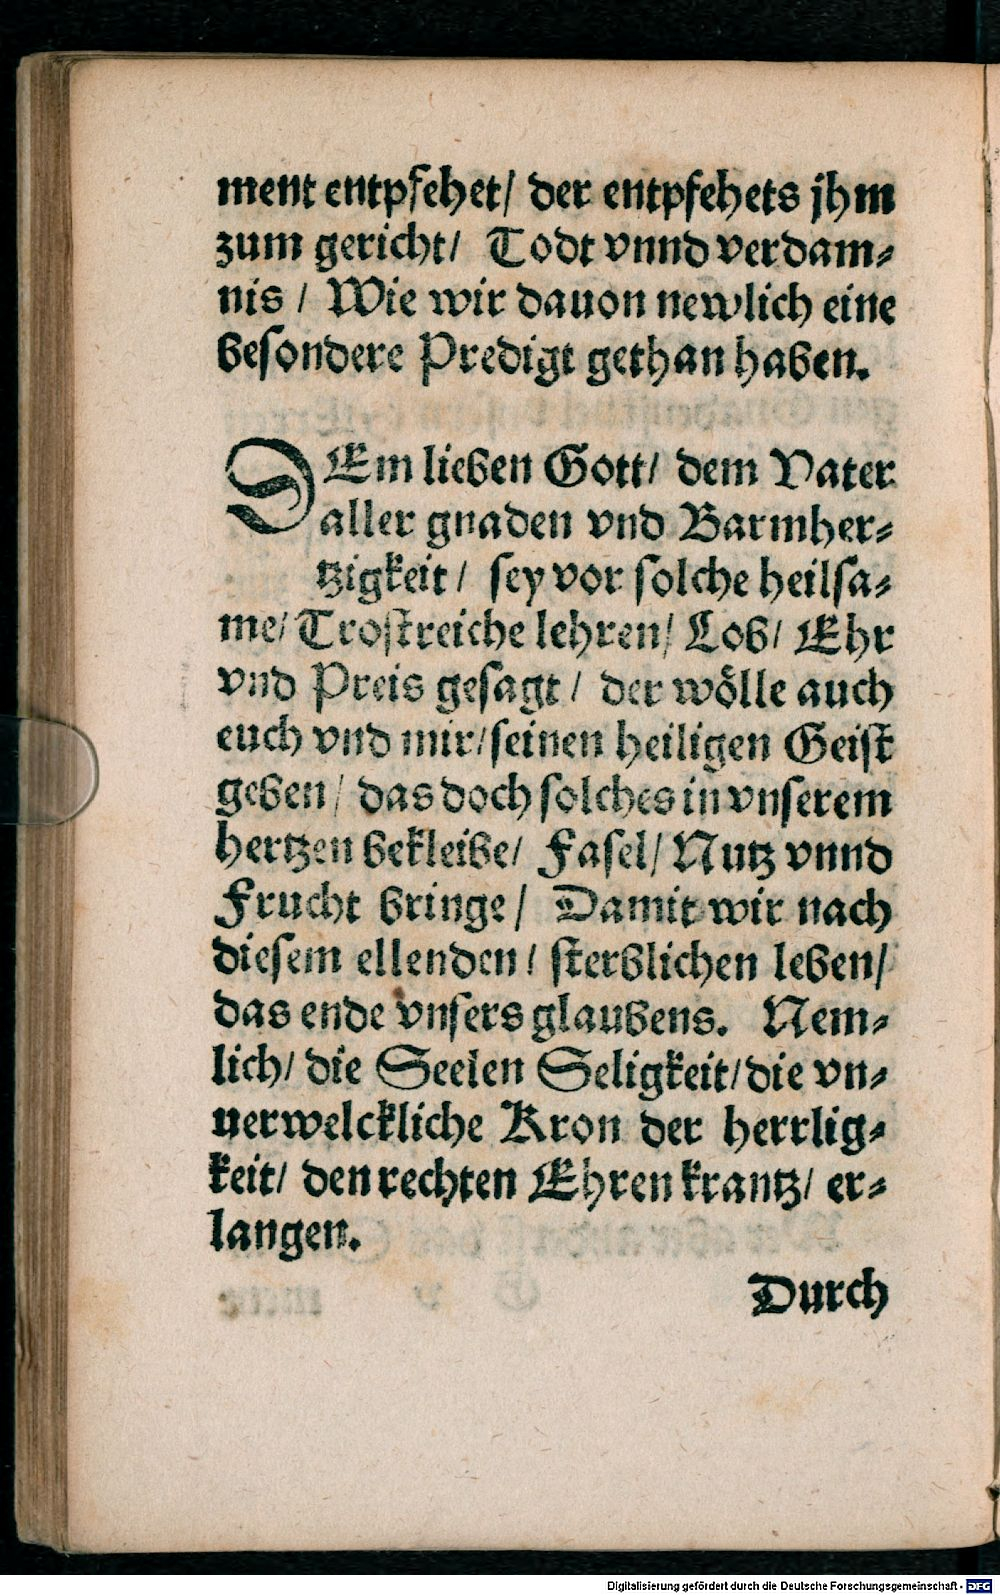 ment entpfehet/ der entpfehets jhm
zum gericht/ Todt vnnd verdam⸗
nis / Wie wir dauon newlich eine
besondere Predigt gethan haben.
DEm lieben Gott/ dem Vater
aller gnaden vnd Barmher⸗
tzigkeit / sey vor solche heilsa⸗
me/ Trostreiche lehren/ Lob/ Ehr
vnd Preis gesagt / der wölle auch
euch vnd mir/ seinen heiligen Geist
geben / das doch solches in vnserem
hertzen bekleibe/ Fasel/ Nutz vnnd
Frucht bringe / Damit wir nach
diesem ellenden / sterblichen leben/
das ende vnsers glaubens. Nem⸗
lich/ die Seelen Seligkeit/ die vn⸗
uerwelckliche Kron der herrlig⸗
keit/ den rechten Ehren krantz/ er⸗
langen.
Durch
Digitalisierung gefördert durch die Deutsche Forschungsgemeinschaft - DFG